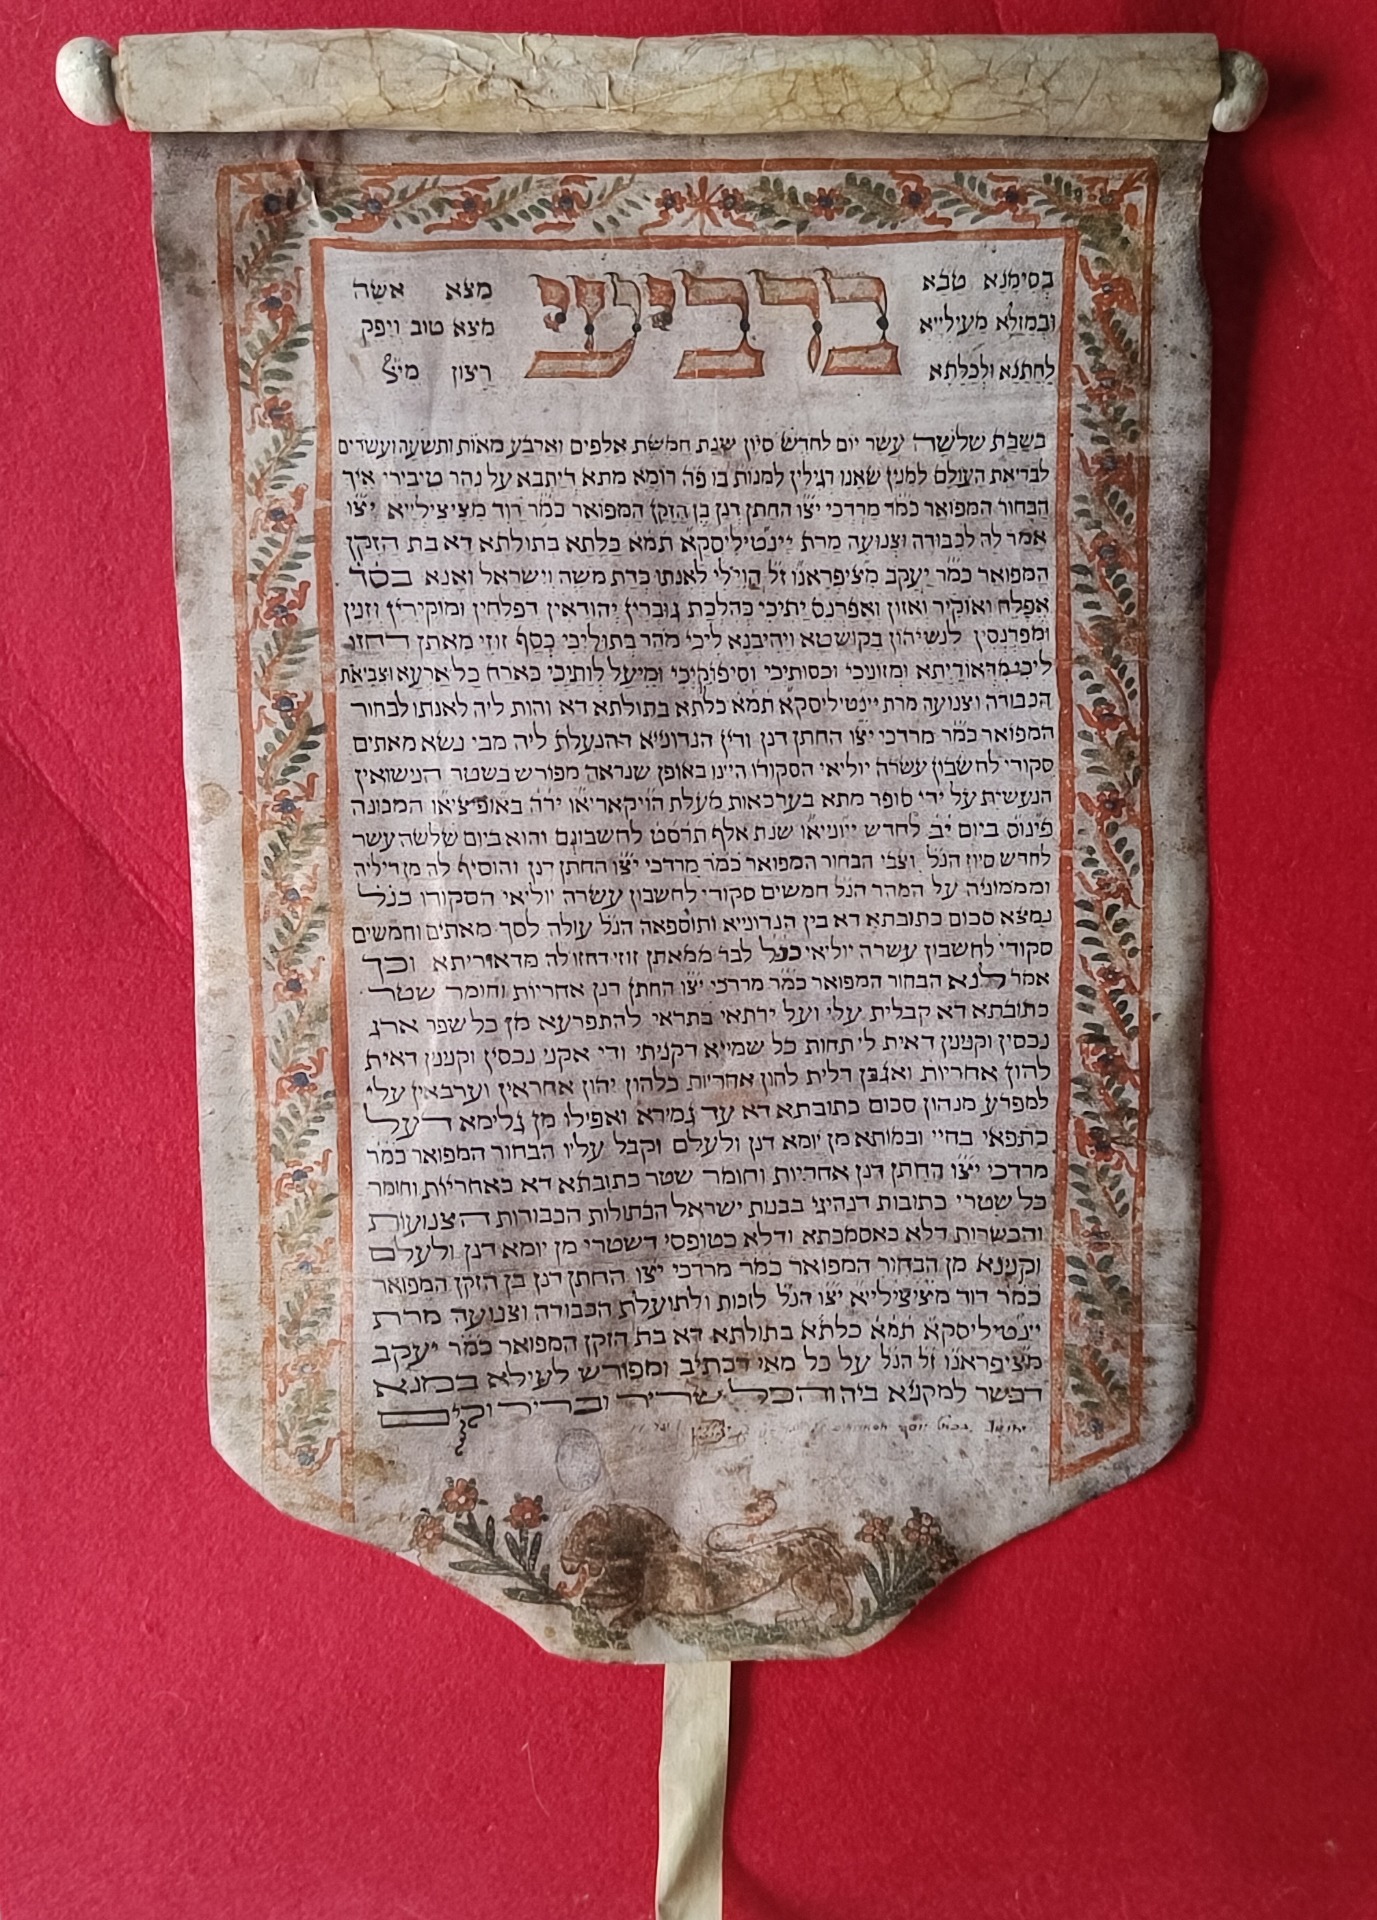 בסימנא טבא
ובמזלא מעילייא
לחתנא ולכלתא
ברביעי
מצא אשה
מצא טוב ויפק
רצון מיי
בשבת שלשה עשר יום לחדש סיון שנת חמשת אלפים וארבע מאות ותשעה ועשרים
לבריאת העולם למנין שאנו רגילין למנות בו פה רומא מתא דיתבא על נהר טיבירי איך
הבחור המפואר כמר מרדכי יצו החתן דנן בן הזקן המפואר כמר דוד מציצילייא יצו
אמר לה לכבודה וצנועה מרת יינטיליסקא תמא כלתא בתולתא דא בת הזקן
המפואר כמר יעקב מציפראנו זל הוי לי לאנתו כדת משה וישראל ואנא בסד
אפלח ואוקיר ואזון ואפרנס יתיכי כהלכת גוברין יהודאין דפלחין ומוקירין וזנין
ומפרנסין לנשיהון בקושטא ויהיבנא ליכי מהר בתוליכי כסף זוזי מאתן דחזו
ליכי מדאורייתא ומזוניכי וכסותיכי וסיפוקיכי ומיעל לותיכי כארח כל ארעא וצביאת
הכבודה וצנועה מרת יינטיליסקא תמא כלתא בתולתא דא והות ליה לאנתו לבחור
המפואר כמר מרדכי יצו החתן דנן ודין הנדונייא דהנעלת ליה מבי נשא מאתים
סקודי לחשבון עשרה יוליאי הסקודו היינו באופן שנראה מפורש בשטר הנישואין
הנעשית על ידי סופר מתא בערכאות מעלת הויקאריאו ירה באופיציאו המכונה
ביום יב לחדש יוניאו שנת אלף תרסט לחשבונם והוא ביום שלשה עשר
לחדש סיון הנל וצבי הבחור המפואר כמר מרדכי יצו החתן דנן והוסיף לה מן דיליה
וממוניה על המהר הנל חמשים סקודי לחשבון עשרה יוליאי הסקודו כנל
נמצא סכום כתובתא דא בין הנדונייא ותוספאה הנל עולה לסך מאתים וחמשים
סקודי לחשבון עשרה יוליאי כנל לבר ממאתן זוזי דחזו לה מדאוריתא וכך
אמר לנא הבחור המפואר כמר מרדכי יצו החתן דנן אחריות וחומר שטר
כתובתא דא קבלית עלי ועל ירתאי בתראי להתפרעא מן כל שפר ארג
נכסין וקנינין דאית לי תחות כל שמייא דקניתי ודי אקני נכסין וקנינין דאית
להון אחריות ואגבן דלית להון אחריות כלהון יהון אחראין וערבאין עלי
למפרע מנהון סכום כתובתא דא עד גמירא ואפילו מן גלימא דעל
כתפאי בחיי ובמותא מן יומא דנן ולעלם וקבל עליו הבחור המפואר כמר
מרדכי יצו החתן דנן אחריות וחומר שטר כתובתא דא כאחריות וחומר
כל שטרי כתובות דנהיגי בבנות ישראל הבתולות הכבודות הצנועות
והכשרות דלא כאסמכתא ודלא כטופסי דשטרי מן יומא דנן ולעלם
וקנינא מן הבחור המפואר כמר מרדכי יצו החתן דנן בן הזקן המפואר
כמר דוד מציצילייא יצו הנל לזכות ולתועלת הכבודה וצנועה מרת
יינטיליסקא תמא כלתא בתולתא דא בת הזקן המפואר כמר יעקב
מציפראנו זל הנל על כל מאי דכתיב ומפורש לעילא במנא
דכשר למקניא ביה והכל שריר ובריר וקים